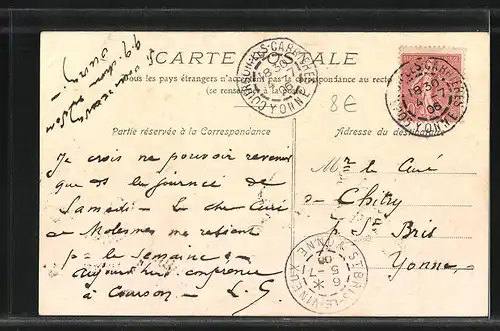 CARTE POSTALE
Tous les pays étrangers n'acceptent pas la correspondance au recto
(se renseigner à la poste)
8E
Partie réservée à la Correspondance
Adresse du destinataire
Je crois ne pouvoir revenir
que ds la journée de
Samedi - Le cher Curé
de Molesmes me retient
pr la semaine &
aujourd'hui conférence
à Courson - L. G.
Mr le Curé
de Chitry
p. St Bris
Yonne
COURSON-LES-CARRIÈRES
18 30
06
YONNE
COURSON-LES-CARRIÈRES
18 30
06
YONNE
ST BRIS-LE-VINEUX
YONNE